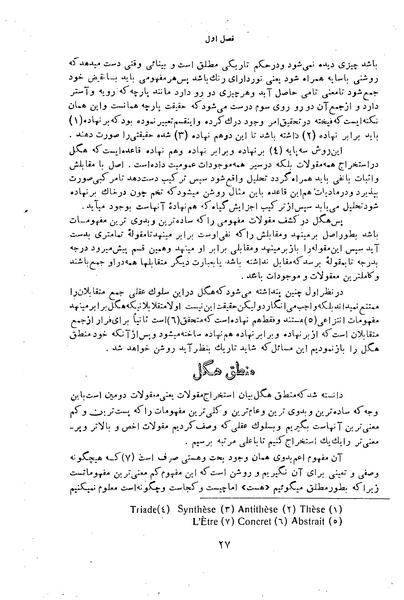 فصل اول
باشد چیزی دیده نمی‌شود و در حکم تاریکی مطلق است و بینائی وقتی دست میدهد که
روشنی با سایه همراه شود یعنی نور دارای رنگ باشد پس هر مفهومی باید با نقیض خود
جمع شود تا معنی تامی حاصل آید و هر چیزی دو رو دارد مانند پارچه که رویه و آستر
دارد و از جمع آن دو رو روی سوم درست می‌شود که حقیقت پارچه همانست و این همان
نکته‌ایست که فیخته در تحقیق امر وجود درك کرده و باینقسم تعبیر نموده بود که بر نهاده (۱)
باید برابر نهاده (۲) داشته باشد تا این دو هم نهاده (۳) شده حقیقتی را صورت دهند .
این روش سه پایه (۴) بر نهاده و برابر نهاده و هم نهاده قاعده‌ایست که هگل
در استخراج همه مقولات بلکه در سیر همه موجودات عمومیت داده است . اصل با مقابلش
و اثبات با نفی باید همراه گردد تحلیل واقع شود سپس ترکیب دست دهد تا مرکبی صورت
بپذیرد و در مادیات هم این قاعده باین مثال روشن میشود که تخم چون در خاك بر نهاده
شود تحلیل می‌یابد سپس از ترکیب اجزایش گیاه که هم نهادۀ آنهاست بوجود می‌آید.
پس هگل در کشف مقولات مفهومی را که ساده‌ترین و بدوی ترین مفهومات
باشد بطور اصل بر مینهد و مقابلش را که نفی اوست برابر مینهد تا مقولۀ تمامتری بدست
آید سپس این مقوله را باز بر مینهد و مقابلی برابر او مینهد و همین قسم پیش میرود درجه
بدرجه تا بمقولۀ برسد که مقابل نداشته باشد یا بعبارت دیگر متقابلها همه در او جمع باشند
و کاملترین معقولات و موجودات باشد .
در نظر اول چنین پنداشته می‌شود که هگل در این سلوك عقلی جمع متقابلان را
ممتنع نمیداند بلکه واجب می‌انگارد ولیکن حقیقت این نیست اولا متقابلانیکه هگل برابر مینهد
مفهومات انتزاعی (۵) هستند و فقط هم نهاده است که متحقق (۶) است ثانیاً برای فرار از جمع
متقابلان است که از بر نهاده و برابر نهاده هم نهاده ساخته میشود و پس از آنکه خود منطق
هگل را باز نمودیم این مسائل که شاید تاریك بنظر آید روشن خواهد شد .
منطق هگل
دانسته شد که منطق هگل بیان استخراج مقولات یعنی مقولات دومین است باین
وجه که ساده‌ترین و بدوی ترین و عام‌ترین و کلی‌ترین مفهومات را که پست‌ترین و کم
معنی‌ترین آنهاست بگیریم و بسلوك عقلی که وصف کردیم مقولات اخص و بالاتر و پر-
معنی‌تر را یك یك استخراج کنیم تا باعلی مرتبه برسیم .
آن مفهوم اعم بدوی همان وجود بحت و هستی صرف است (۷) که هیچگونه
وصفی و تعینی برای آن نگیریم و روشن است که این مفهوم کم معنی‌ترین مفهوماتست
زیرا که بطور مطلق میگوئیم «هست» اما چیست و کجاست و چگونه است معلوم نمیکنیم
(۱) Thèse (۲) Antithèse (۳) Synthèse (۴) Triade
(۵) Abstrait (۶) Concret (۷) L'Être
۲۷